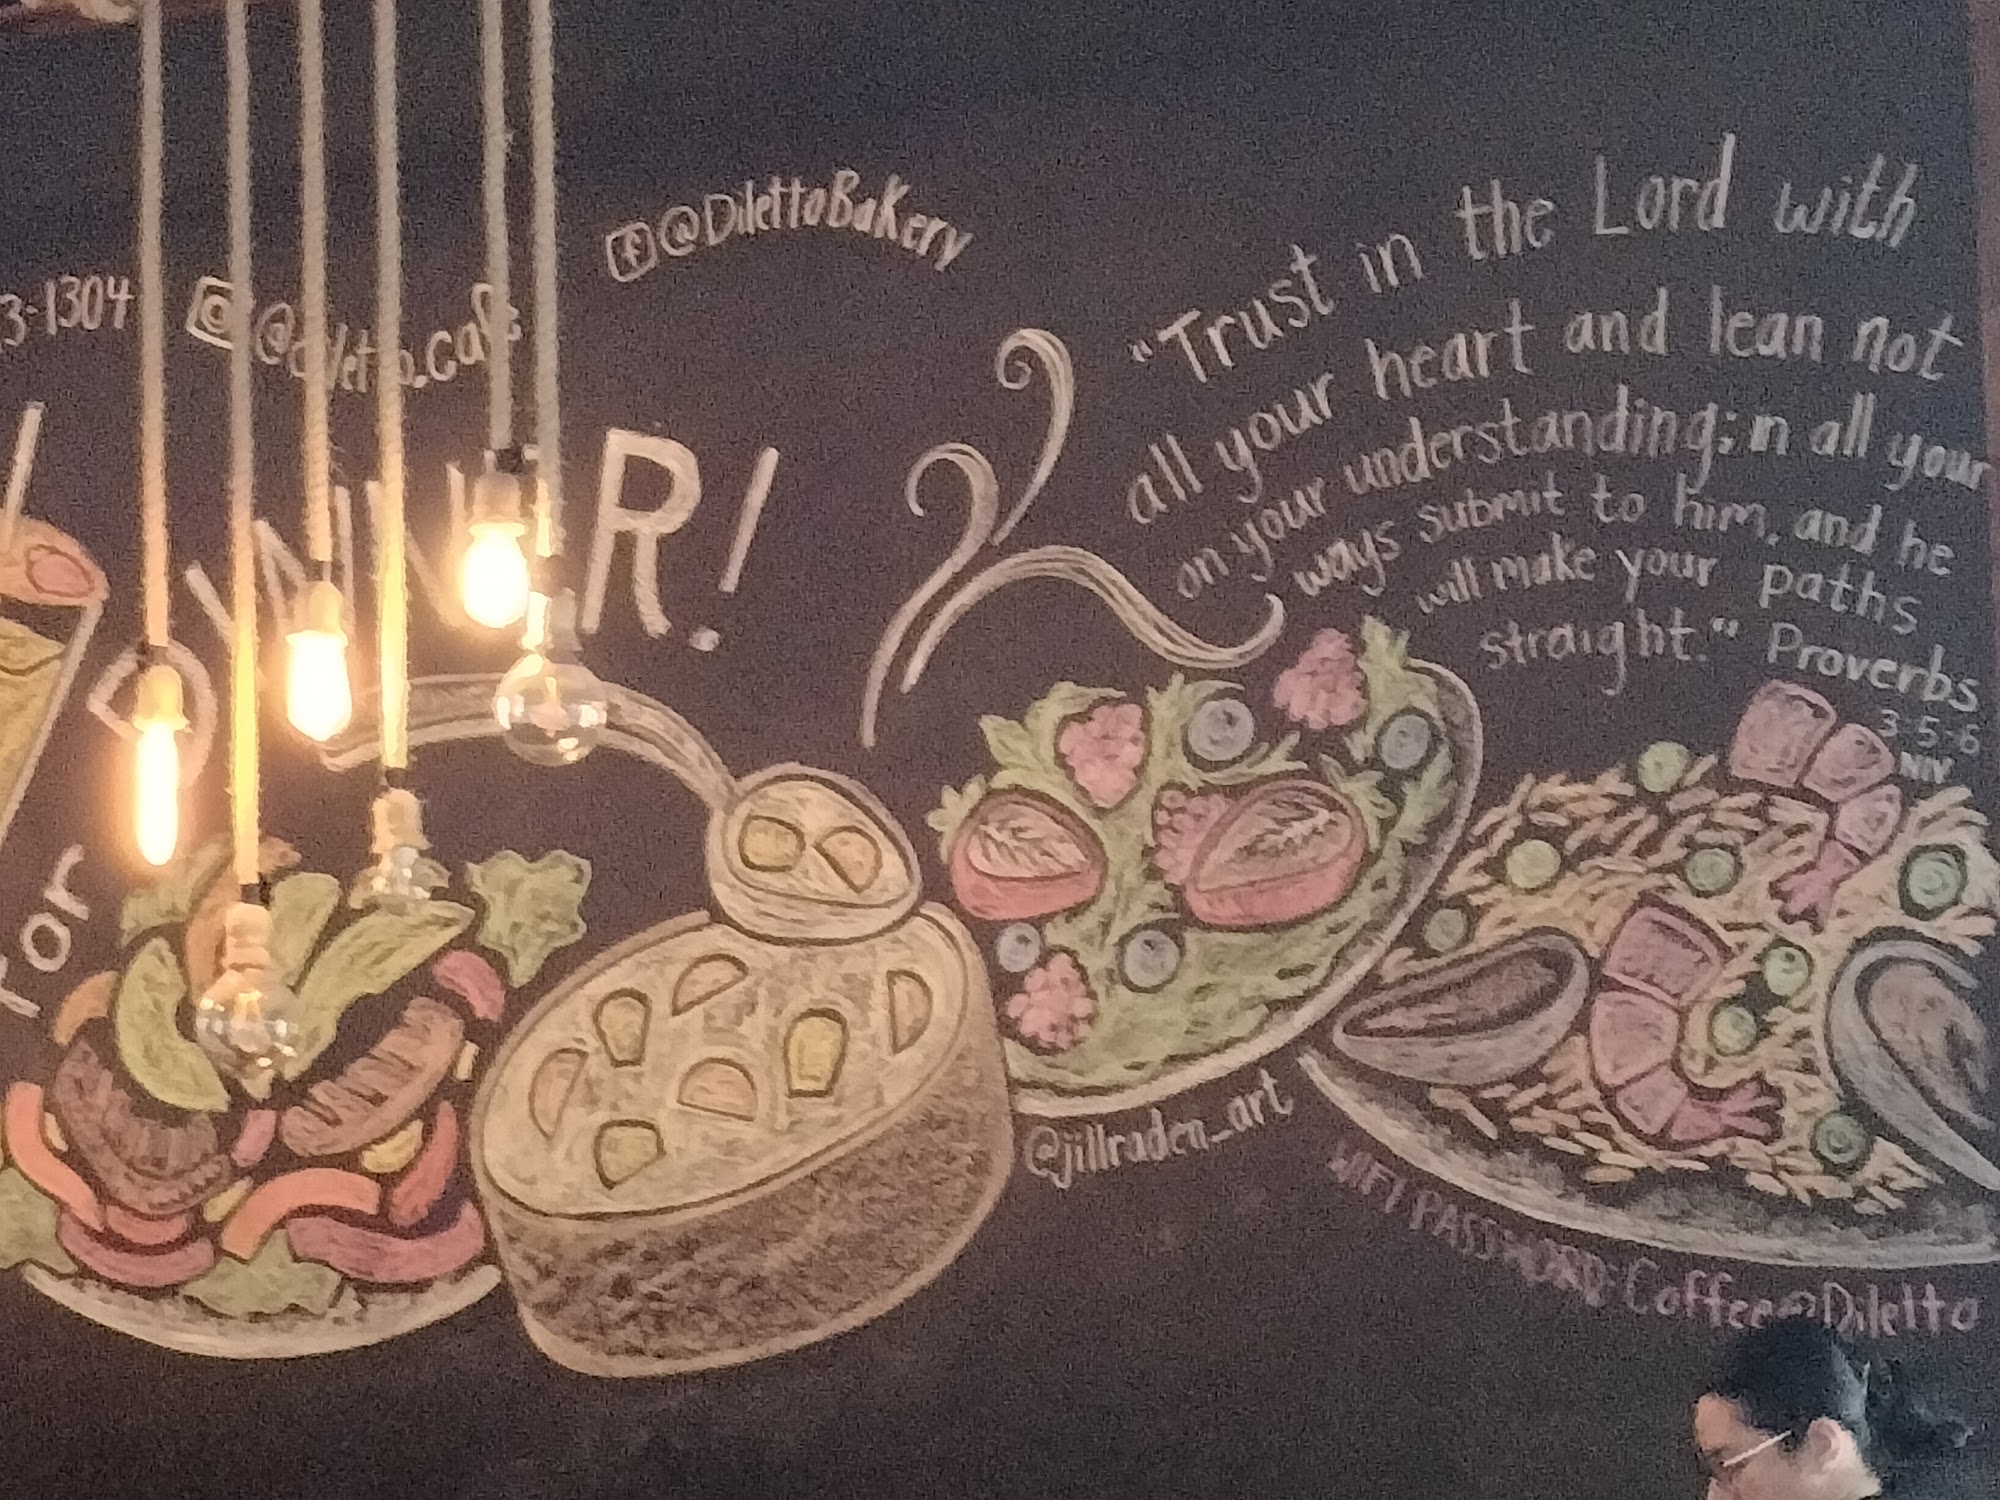 3-1304
@diletto.cafe
@DilettoBakery
DINNER!
For
"Trust in the Lord with
all your heart and lean not
on your understanding; in all your
ways submit to him, and he
will make your paths
straight." Proverbs
3:5-6
NIV
@jillraden_art
WIFI PASSWORD: Coffee@Diletto